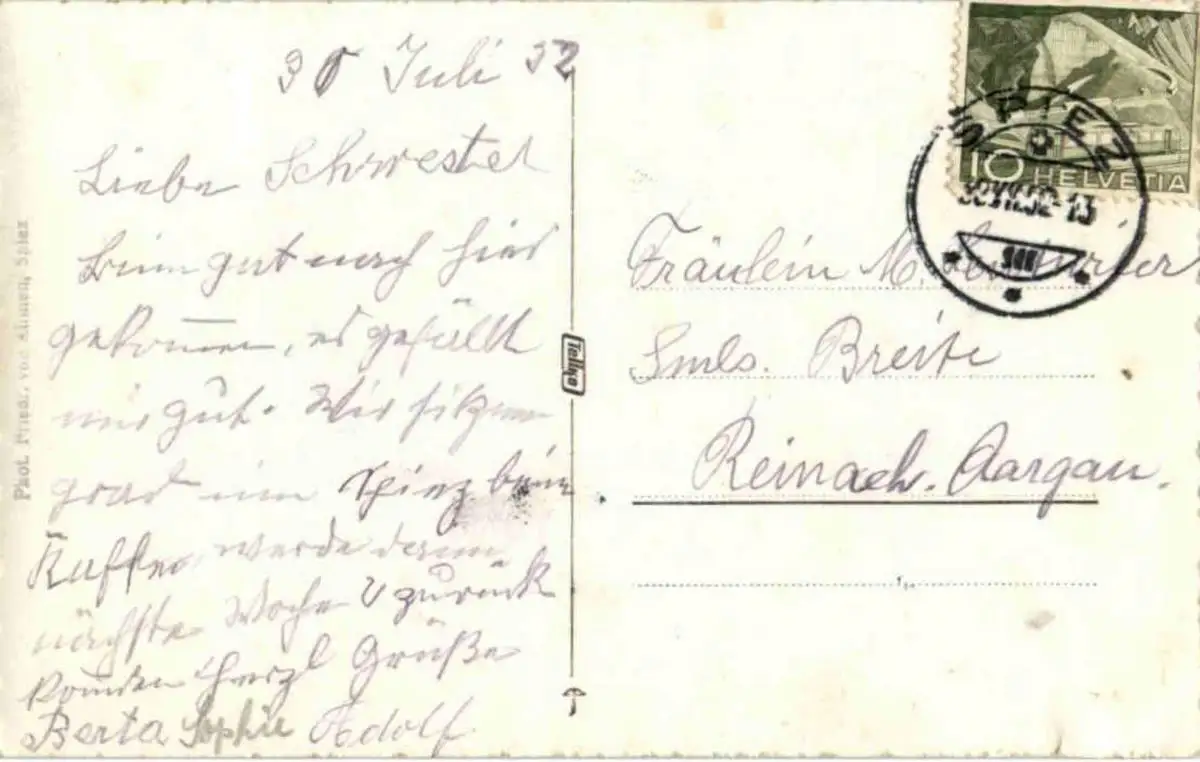 30 Juli 52
Liebe Schwester
binn gut nach hier
gekommen, es gefällt
mir gut. Wir sitzen
grad im beim
Kaffee, werde dann
nächste Woche zurück
kommen herzl Grüße
Berta Sophie Adolf
Phot. Fried. von Känel, Spiez
Tellko
HELVETIA
10
SPIEZ
30.VII.52-13
Fräulein M.
Breite
Reinach. Aargau.